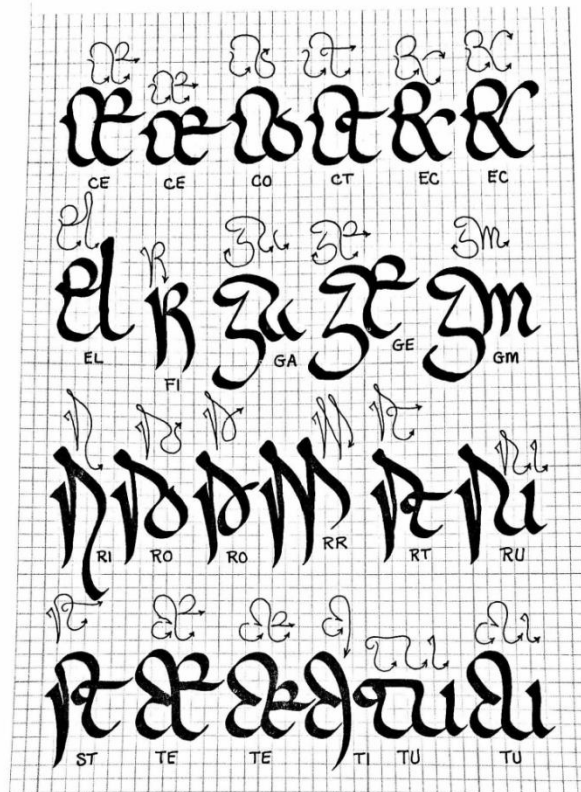 CE CE CO CT EC EC
EL FI GA GE GM
RI RO RO RR RT RU
ST TE TE TI TU TU